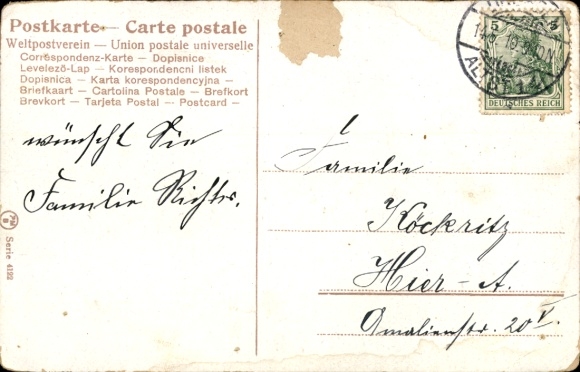 Postkarte — Carte postale
Weltpostverein — Union postale universelle
Correspondenz-Karte — Dopisnice
Levelező-Lap — Korespondencni listek
Dopisnica — Karta korespondencyjna —
Briefkaart — Cartolina Postale — Brefkort
Brevkort — Tarjeta Postal — Postcard —
5 5
DEUTSCHES REICH
wünscht Sie
Familie Richter.
Familie
Köckritz
Hier - A.
Amalienstr. 20 V.
Serie 4122